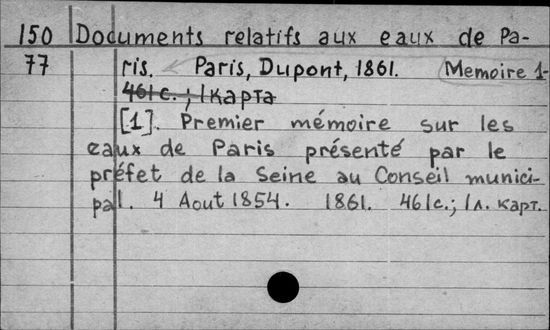 150 Documents relatifs aux eaux de Pa-
77 ris. Paris, Dupont, 1861. Memoire 1-
461c.; 1 карта
[1]. Premier mémoire sur les
eaux de Paris présenté par le
préfet de la Seine au Conseil munici-
pal. 4 Aout 1854. 1861. 461c.; 1л. карт.